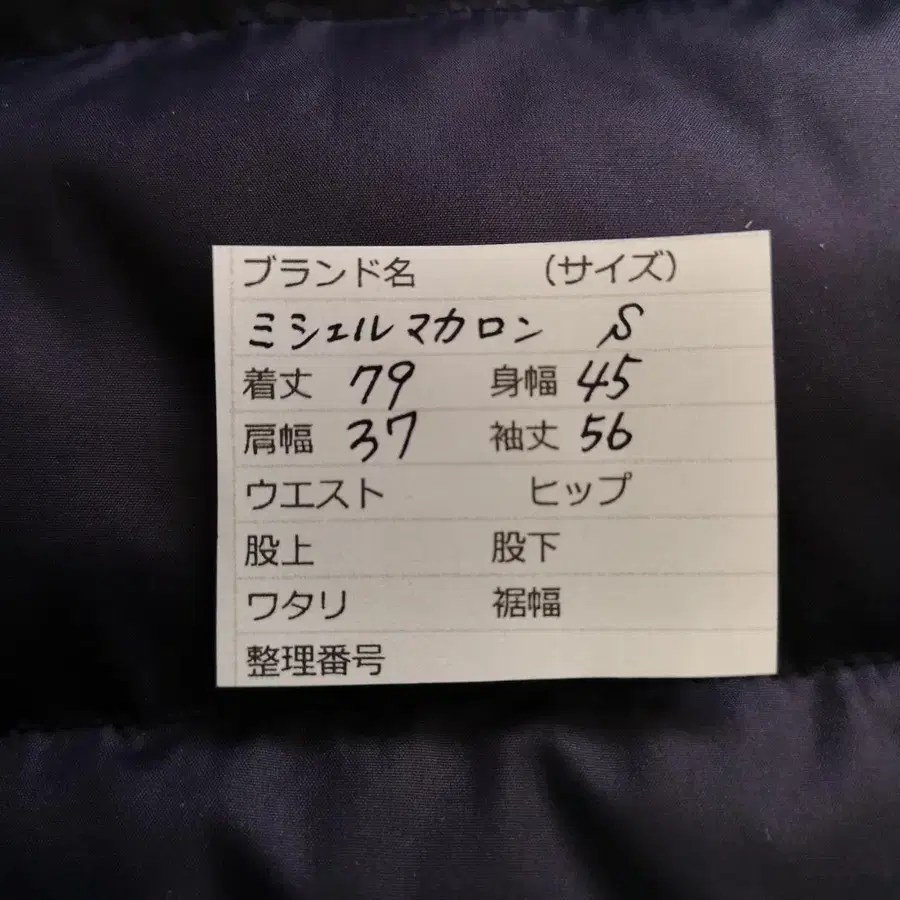 ブランド名 （サイズ）
ミシェルマカロン S
着丈 79 身幅 45
肩幅 37 袖丈 56
ウエスト ヒップ
股上 股下
ワタリ 裾幅
整理番号